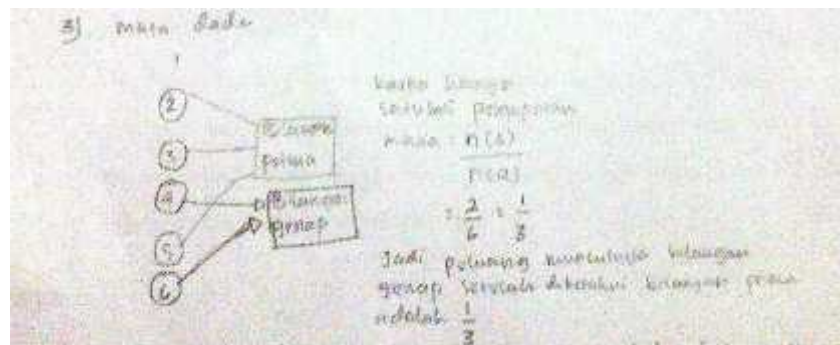 3) mata dadu
1
2
3
4
5
6
Bilangan
prima
Bilangan
genap
karna hanya
sekali pelemparan
maka = n(A)
= 2/6 = 1/3
Jadi peluang munculnya bilangan
genap setelah diketahui bilangan prima
adalah 1/3